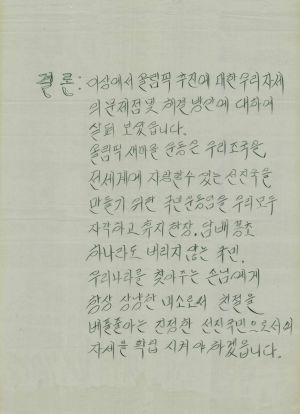 결론: 이상에서 올림픽 추진에 대한 우리 자세
의 문제점 및 해결 방안에 대하여
살펴 보았습니다.
올림픽 새마을 운동은 우리 조국을
전세계에 자랑할수 있는 선진국을
만들기 위한 국민운동임을 우리 모두
자각하고 휴지 한장, 담배 꽁초
하나라도 버리지 않는 국민,
우리나라를 찾아주는 손님에게
항상 상냥한 미소로서 친절을
베풀줄아는 진정한 선진국민으로서의
자세를 확립 시켜야 하겠습니다.